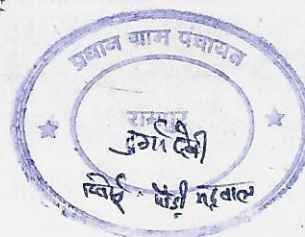 प्रधान ग्राम पंचायत
रामपुर
दुर्गा देवी
पौड़ी गढ़वाल